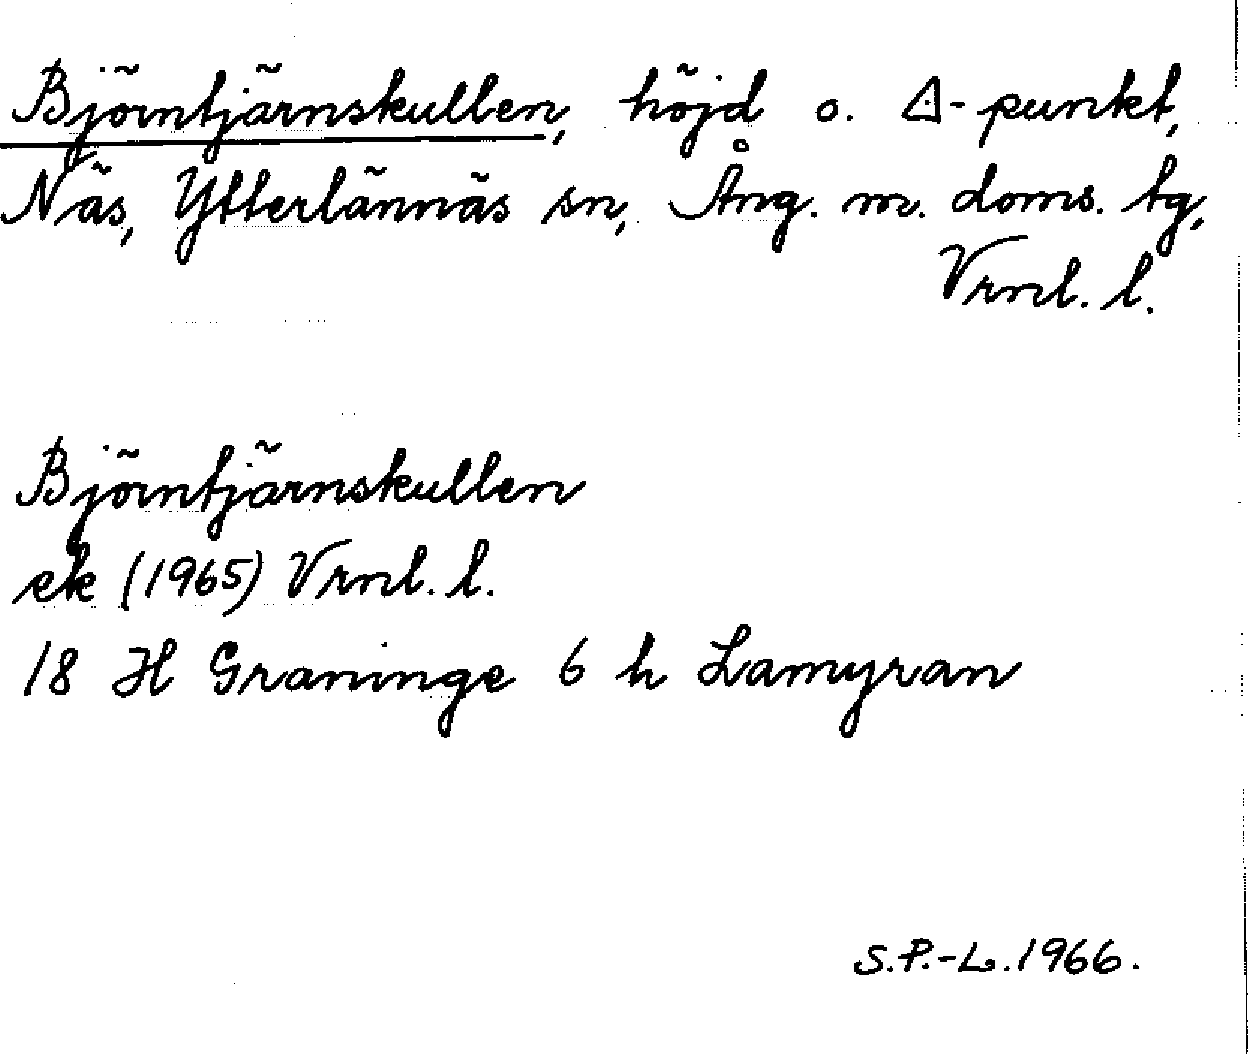 Björntjärnskullen, höjd o. △-punkt,
Näs, Ytterlännäs sn, Ång. m. doms. tg,
Vrml. l.
Björntjärnskullen
ek (1965) Vrml. l.
18 H Graninge 6 h Lamyran
S.P.-L. 1966.